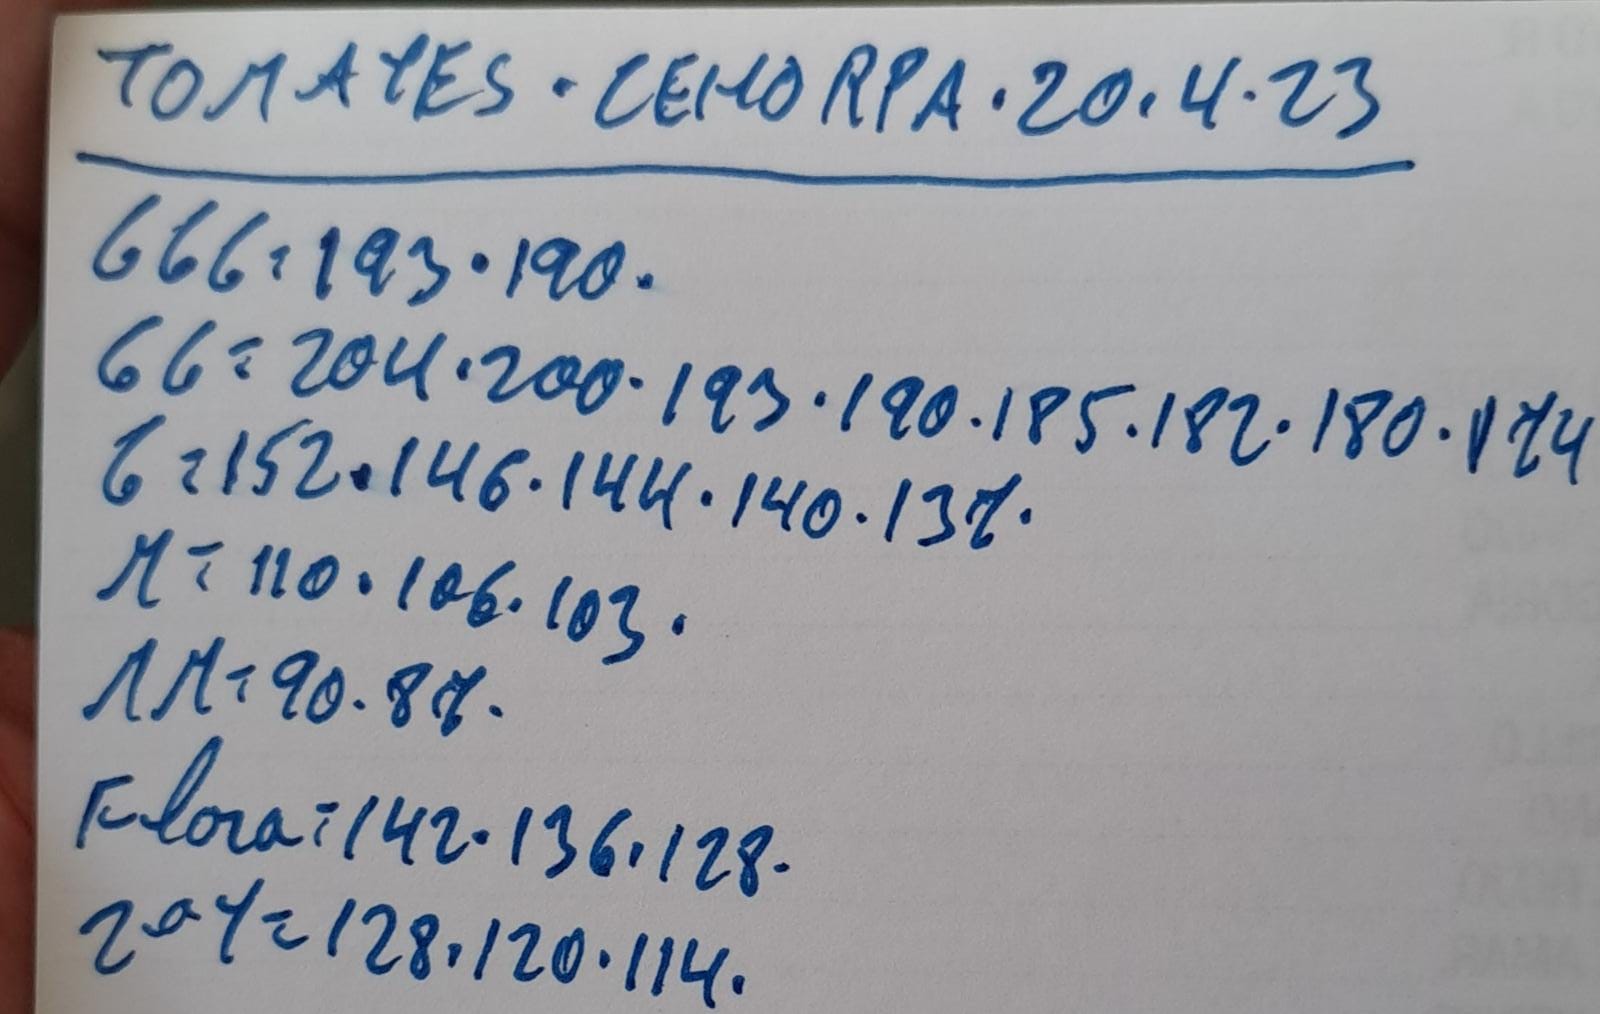 TOMATES · CEHORPA · 20.4.23
GGG = 193 · 190.
GG = 204 · 200 · 193 · 190 · 185 · 182 · 180 · 174
G = 152 · 146 · 144 · 140 · 137.
M = 110 · 106 · 103.
MM = 90 · 87.
Flora = 142 · 136 · 128.
2ª Y = 128 · 120 · 114.